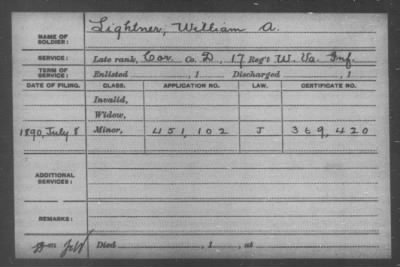 NAME OF SOLDIER: Lightner, William A.
SERVICE: Late rank, Cor Co. D, 17 Reg't W. Va. Inf.
TERM OF SERVICE: Enlisted , 1 Discharged , 1
DATE OF FILING. CLASS. APPLICATION NO. LAW. CERTIFICATE NO.
Invalid,
Widow,
1890, July 8 Minor, 451,102 J 369,420
ADDITIONAL SERVICES:
REMARKS:
Died , 1 , at